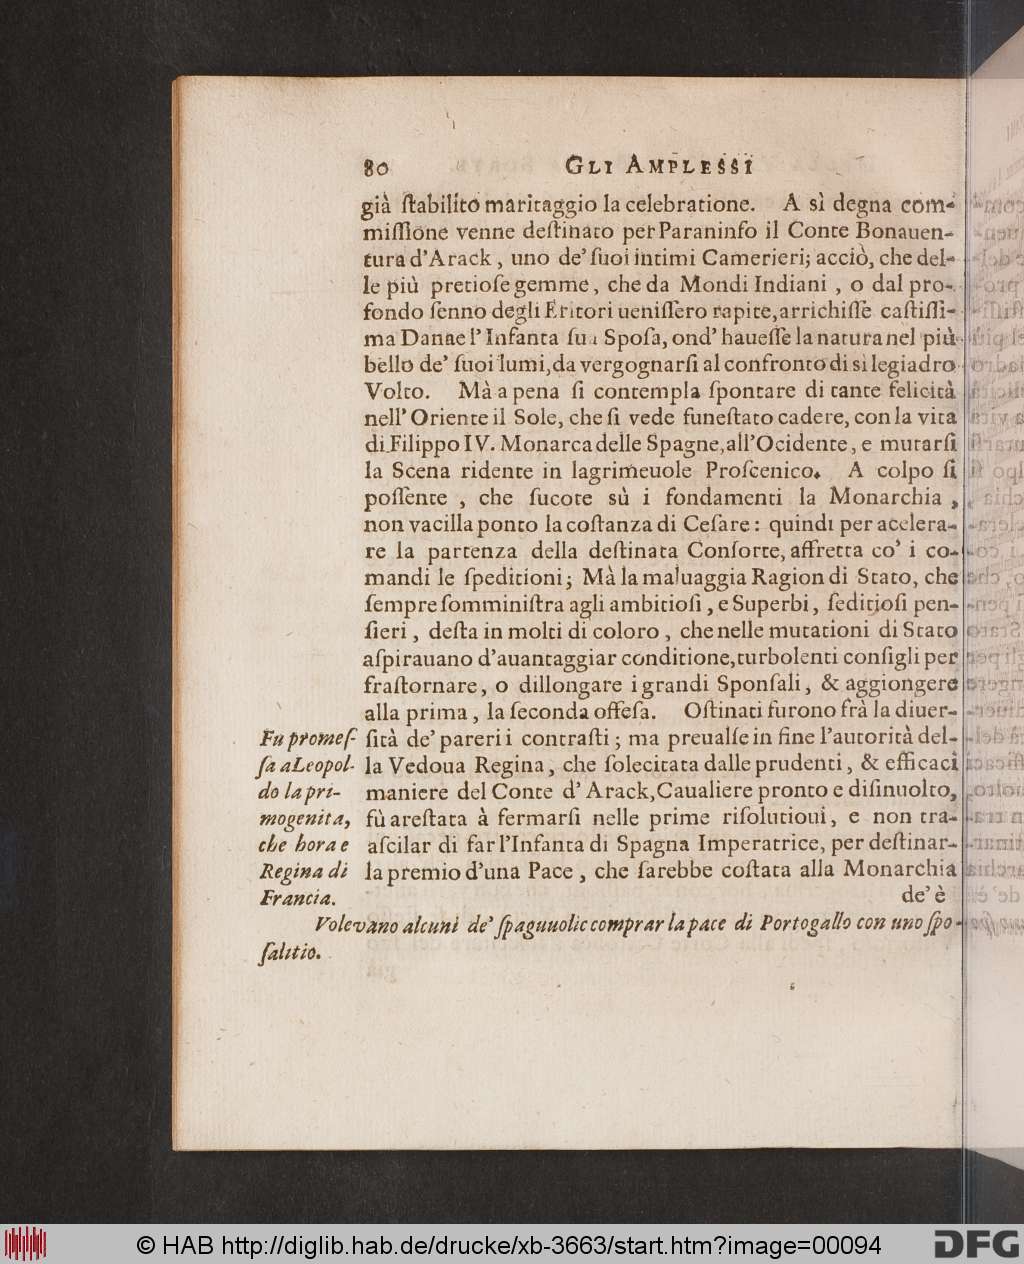 80 GLI AMPLESSI
già ſtabilito maritaggio la celebratione. A sì degna com-
miſſione venne deſtinato per Paraninfo il Conte Bonauen-
tura d'Arack, uno de' ſuoi intimi Camerieri; acciò, che del-
le più pretioſe gemme, che da Mondi Indiani, o dal pro-
fondo ſenno degli Eritori ueniſſero rapite, arrichiſſe caſtiſſi-
ma Danae l' Infanta ſua Spoſa, ond' haueſſe la natura nel più
bello de' ſuoi lumi, da vergognarſi al confronto di si legiadro
Volto. Mà a pena ſi contempla ſpontare di tante felicità
nell' Oriente il Sole, che ſi vede funeſtato cadere, con la vita
di Filippo IV. Monarca delle Spagne, all'Ocidente, e mutarſi
la Scena ridente in lagrimeuole Proſcenico. A colpo ſi
poſſente, che ſucote sù i fondamenti la Monarchia,
non vacilla ponto la coſtanza di Ceſare: quindi per acelera-
re la partenza della deſtinata Conſorte, affretta co' i co-
mandi le ſpeditioni; Mà la maluaggia Ragion di Stato, che
ſempre ſomminiſtra agli ambitioſi, e Superbi, ſeditioſi pen-
ſieri, deſta in molti di coloro, che nelle mutationi di Stato
aſpirauano d'auantaggiar conditione, turbolenti conſigli per
fraſtornare, o dillongare i grandi Sponſali, & aggiongere
alla prima, la ſeconda offeſa. Oſtinati furono frà la diuer-
ſità de' pareri i contraſti; ma preualſe in fine l'autorità del-
la Vedoua Regina, che ſolecitata dalle prudenti, & efficaci
maniere del Conte d' Arack, Caualiere pronto e diſinuolto,
fù areſtata à fermarſi nelle prime riſolutioui, e non tra-
aſcilar di far l'Infanta di Spagna Imperatrice, per deſtinar-
la premio d'una Pace, che ſarebbe coſtata alla Monarchia
de' è
Fu promeſ-
ſa a Leopol-
do la pri-
mogenita,
che hora e
Regina di
Francia.
Volevano alcuni de' ſpaguuolic comprar la pace di Portogallo con uno ſpo-
ſalitio.
© HAB http://diglib.hab.de/drucke/xb-3663/start.htm?image=00094
DFG